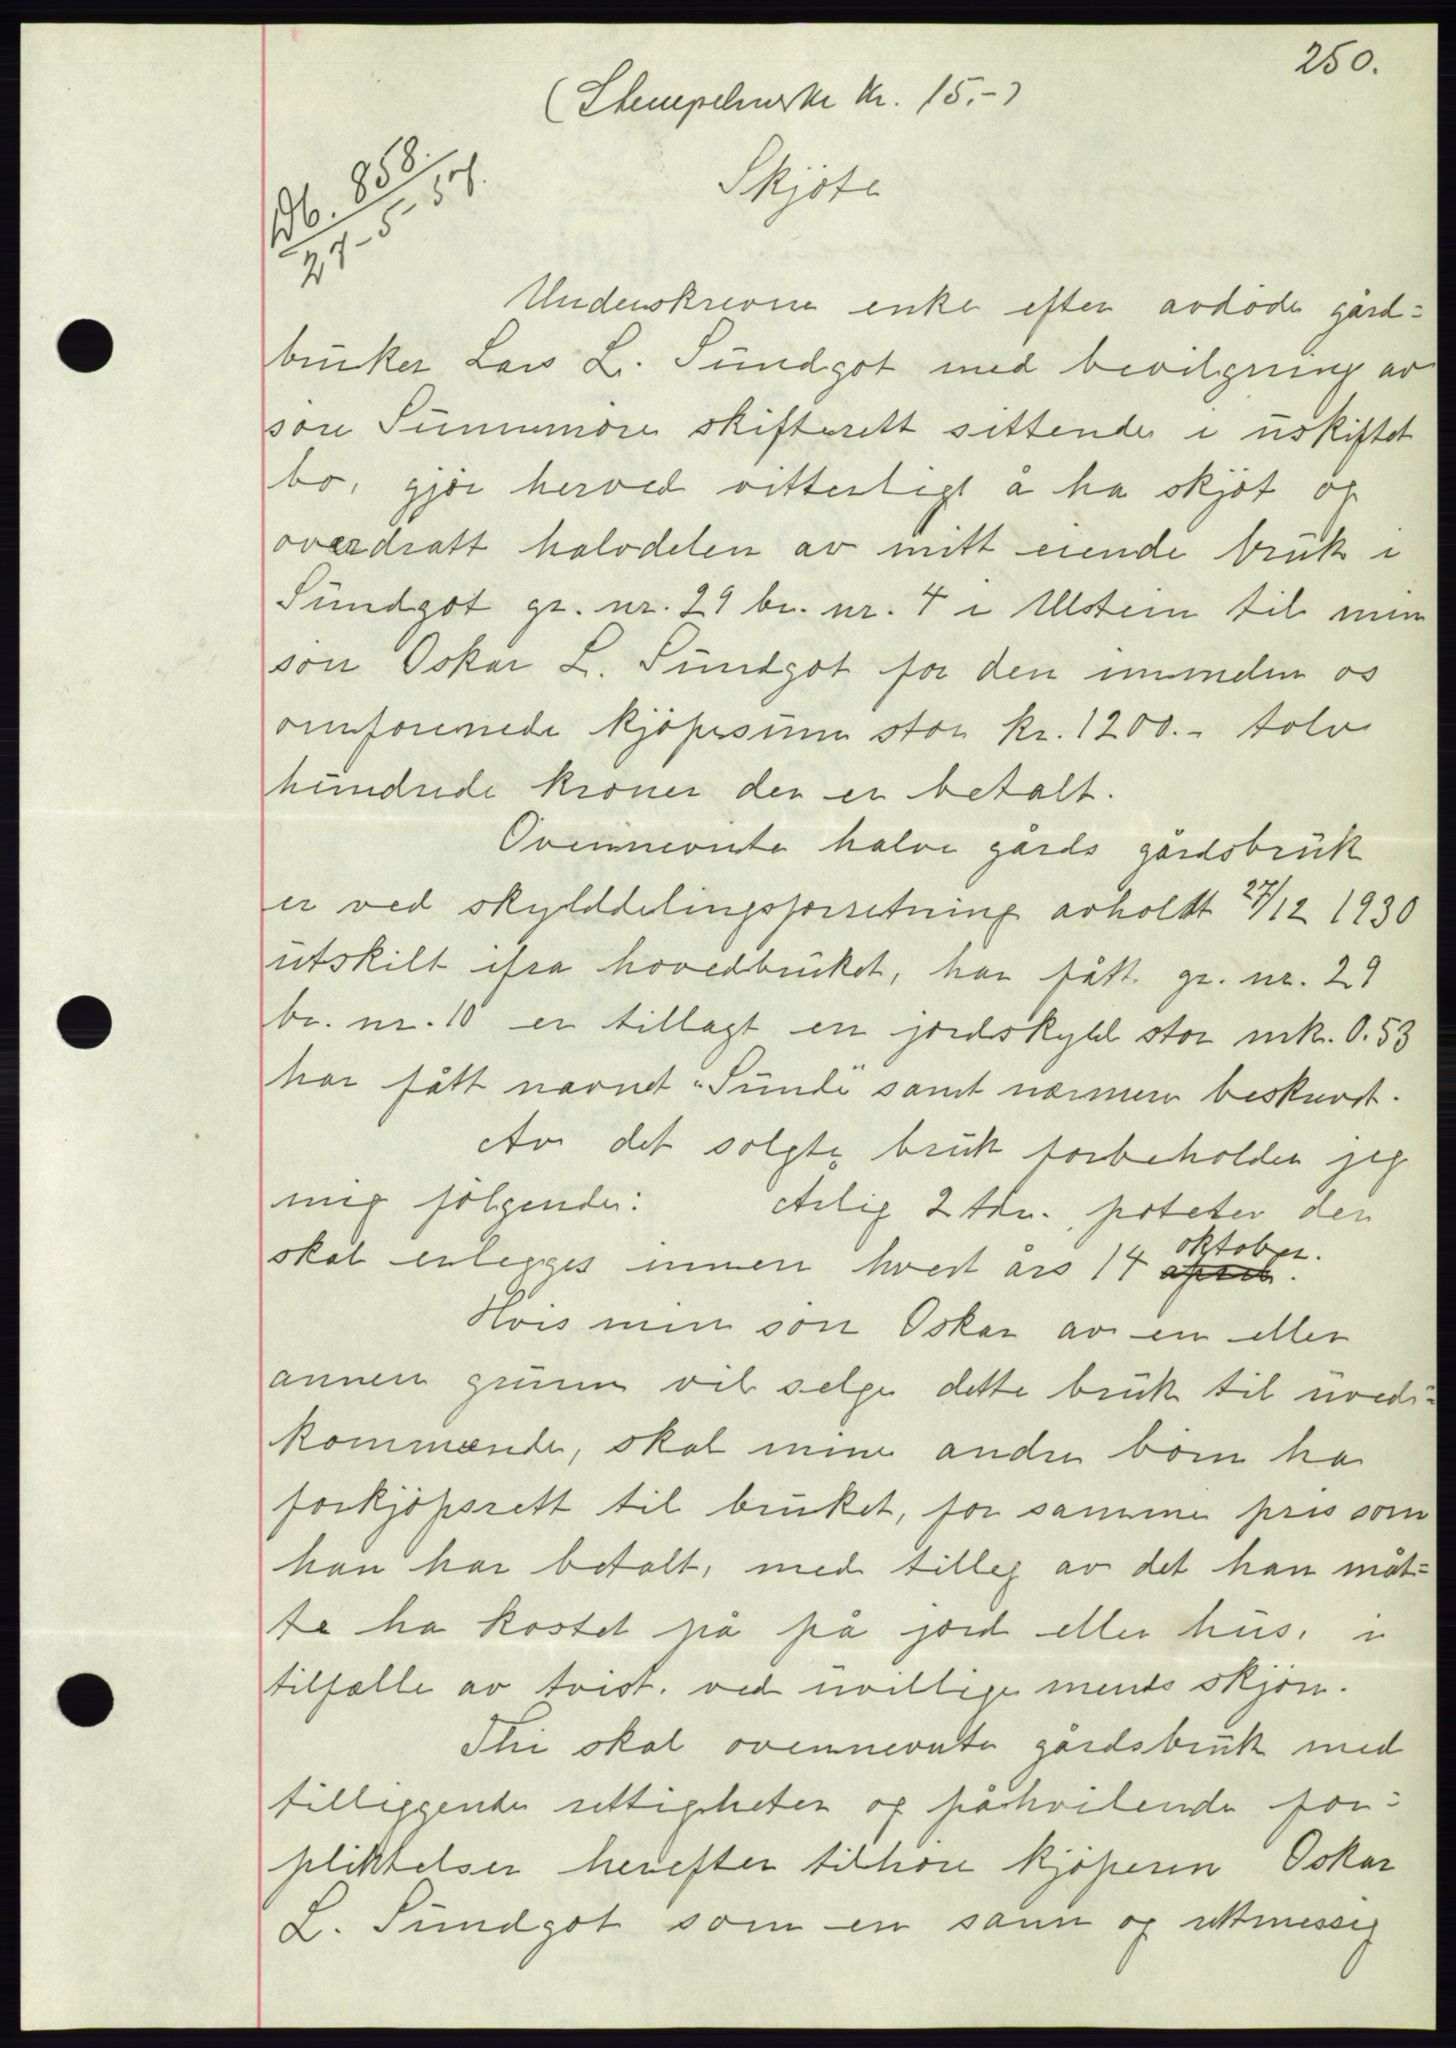 250.
(Stempelmerke kr. 15.-)
Skjöte
Db. 858.
27-5-37.
Underskrevne enke efter avdöde gård=
bruker Lars L. Sundgot med bevilgning av
söre Sunnmöre skifterett sittende i uskiftet
bo, gjör herved vitterligt å ha skjöt og
overdratt halvdelen av mitt eiende bruk i
Sundgot gr. nr. 29 br. nr. 4 i Ulstein til min
sön Oskar L. Sundgot for den immelm os
omforenede kjöpesum stor kr. 1200.- tolv
hundrede kroner der er betalt.
Ovennevnte halve gårds gårdsbruk
er ved skylddelingsforretning avholdt 27/12 1930
utskilt ifra hovedbruket, har fått gr. nr. 29
br. nr. 10 er tillagt en jordskyld stor mk. 0.53
har fått navnet "Sunde" samt nærmere beskrevet.
Av det solgte bruk forbeholder jeg
mig fölgende: Årlig 2 tdr. poteter der
skal erlegges innen hvert års 14 oktober.
april.
Hvis min sön Oskar av en eller
annen grunn vil selge dette bruk til uved=
kommende, skal mine andre börn ha
forkjöpsrett til bruket, for samme pris som
han har betalt, med tilleg av det han måt=
te ha kostet på på jord eller hus, i
tilfælle av tvist. ved uvillige mends skjönn.
Thi skal ovennevnte gårdsbruk med
tilliggende rettigheter og påhvilende for=
pliktelser herefter tilhöre kjöperen Oskar
L. Sundgot som en sann og rettmessig